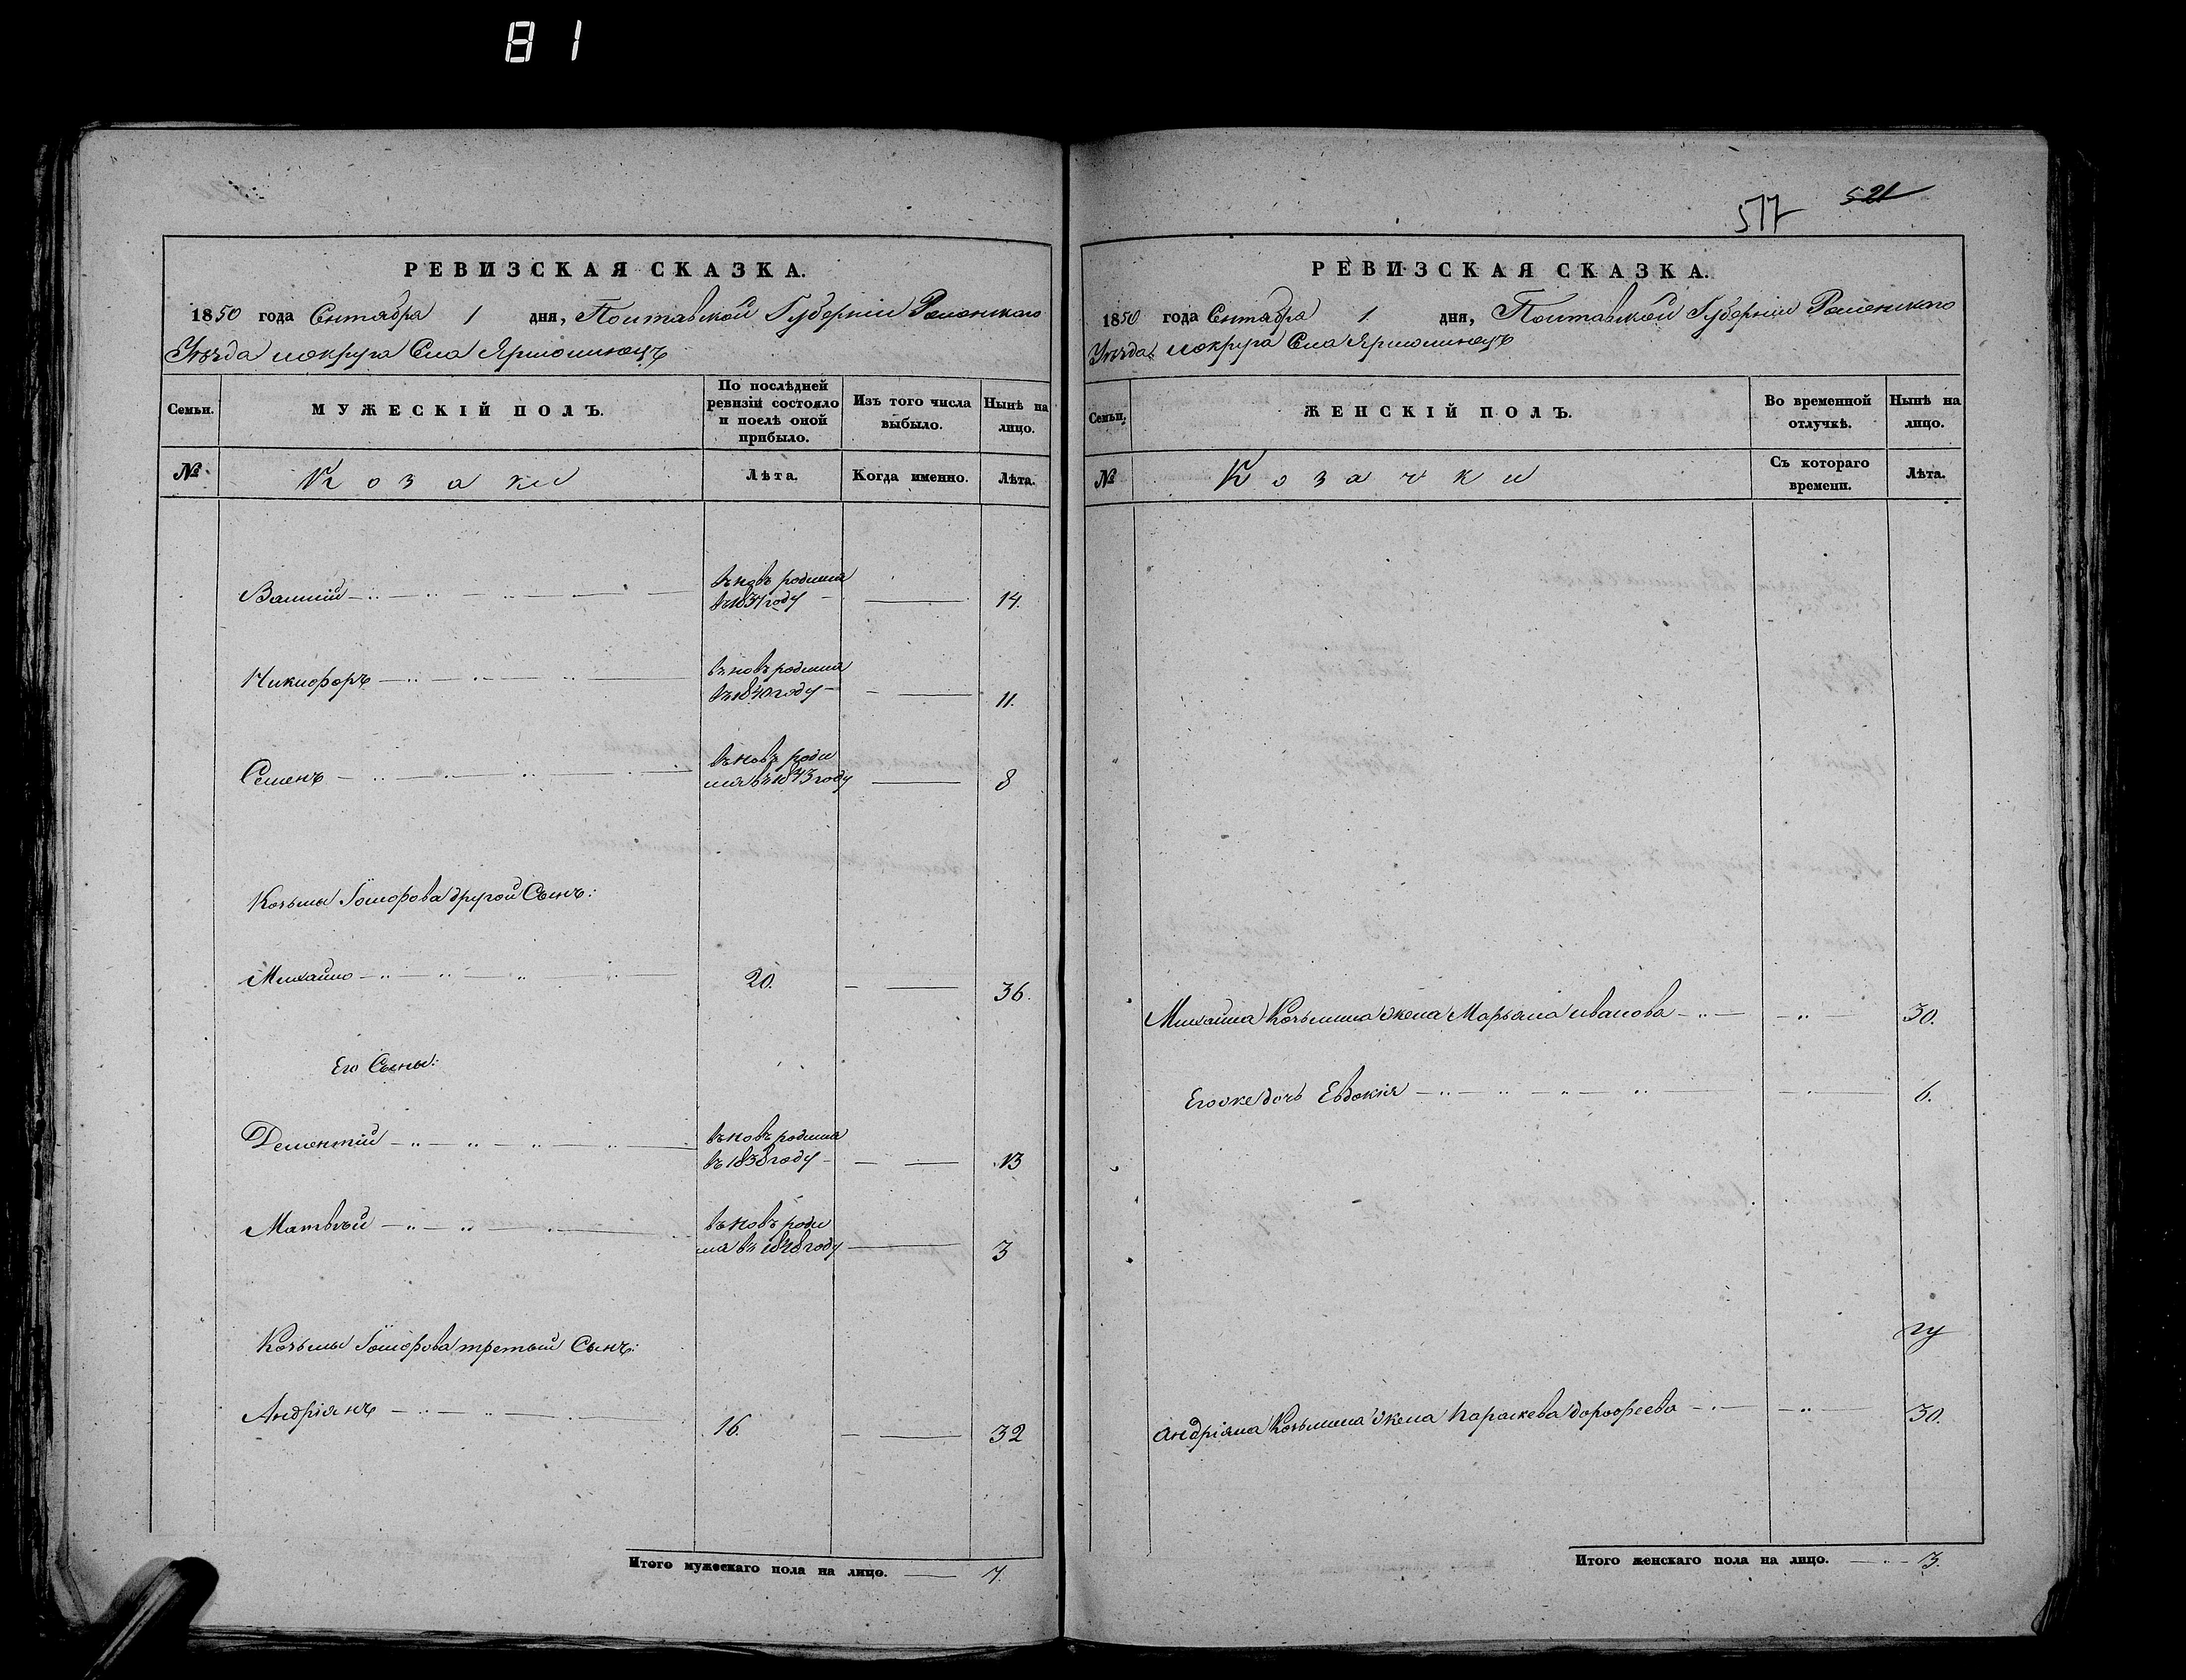 81
РЕВИЗСКАЯ СКАЗКА.
1850 года Сентября 1 дня, Полтавской Губерніи Роменскаго
Уѣзда и округа Села Ярмолинецъ
Семьи.
МУЖЕСКІЙ ПОЛЪ.
По послѣдней ревизіи состояло и послѣ оной прибыло.
Изъ того числа выбыло.
Нынѣ на лицо.
№
Козаки
Лѣта.
Когда именно.
Лѣта.
Василій 14.
въ новь родился
въ 1837 году
Никифоръ 11.
въ новь родился
въ 1840 году
Семенъ 8
въ новь роди
лся въ 1843 году
Козьмы Ѳомофова другой Сынъ:
Михайло 20. 36.
Его Сыны:
Дементій 13
въ новь родился
въ 1838 году
Матвѣй 3
въ новь роди
лся въ 1848 году
Козьмы третьий Сынъ:
Андріянъ 16. 32
Итого мужескаго пола на лицо. 7.
577 521
РЕВИЗСКАЯ СКАЗКА.
1850 года Сентября 1 дня, Полтавской Губерніи Роменскаго
Уѣзда и округа Села Ярмолинецъ
Семьи.
ЖЕНСКІЙ ПОЛЪ.
Во временной отлучкѣ.
Нынѣ на лицо.
№
Козачки
Съ котораго времени.
Лѣта.
Михайла Козьмина жена Марьяна иванова 30.
Его же дочь Евдокія 6.
Андріяна Козьмина жена параскева дорофеева 30.
Итого женскаго пола на лицо. 3.